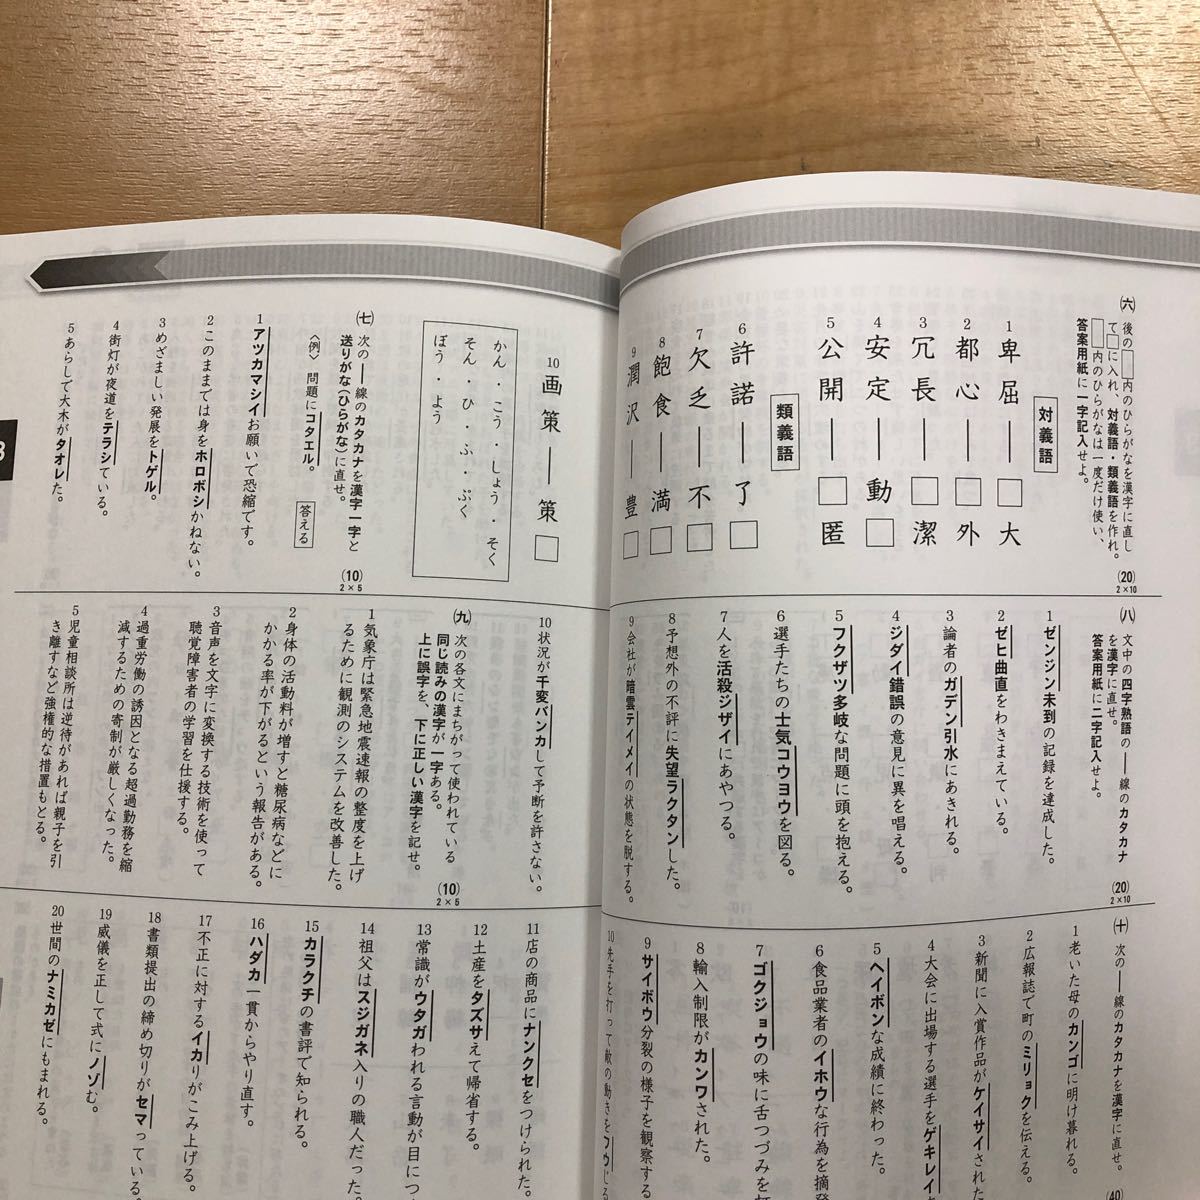 ㈥ 後の□内のひらがなを漢字に直し
て□に入れ、対義語・類義語を作れ。
□内のひらがなは一度だけ使い、
答案用紙に一字記入せよ。
(20)
2×10
対義語
1 卑屈―□大
2 都心―□外
3 冗長―□潔
4 安定―動□
5 公開―□匿
類義語
6 許諾―了□
7 欠乏―不□
8 飽食―満□
9 潤沢―豊□
10 画策―策□
かん・こう・しょう・そく
そん・ひ・ふ・ぷく
ぼう・よう
㈦ 次の――線のカタカナを漢字一字と
送りがな(ひらがな)に直せ。
(10)
2×5
〈例〉問題にコタエル。 答える
1 アツカマシイお願いで恐縮です。
2 このままでは身をホロボシかねない。
3 めざましい発展をトゲル。
4 街灯が夜道をテラシている。
5 あらしで大木がタオレた。
㈧ 文中の四字熟語の――線のカタカナ
を漢字に直せ。
答案用紙に二字記入せよ。
(20)
2×10
1 ゼンジン未到の記録を達成した。
2 ゼヒ曲直をわきまえている。
3 論者のガデン引水にあきれる。
4 ジダイ錯誤の意見に異を唱える。
5 フクザツ多岐な問題に頭を抱える。
6 選手たちの士気コウヨウを図る。
7 人を活殺ジザイにあやつる。
8 予想外の不評に失望ラクタンした。
9 会社が暗雲テイメイの状態を脱する。
10 状況が千変バンカして予断を許さない。
㈨ 次の各文にまちがって使われている
同じ読みの漢字が一字ある。
上に誤字を、下に正しい漢字を記せ。
(10)
2×5
1 気象庁は緊急地震速報の整度を上げ
るために観測のシステムを改善した。
2 身体の活動料が増すと糖尿病などに
かかる率が下がるという報告がある。
3 音声を文字に変換する技術を使って
聴覚障害者の学習を仕援する。
4 過重労働の誘因となる超過勤務を縮
減するための寄制が厳しくなった。
5 児童相談所は逆待があれば親子を引
き離すなど強権的な措置もとる。
㈩ 次の――線のカタカナを漢字に直せ。
(40)
1 老いた母のカンゴに明け暮れる。
2 広報誌で町のミリョクを伝える。
3 新聞に入賞作品がケイサイされた
4 大会に出場する選手をゲキレイ
5 ヘイボンな成績に終わった。
6 食品業者のイホウな行為を摘発
7 ゴクジョウの味に舌つづみを打
8 輸入制限がカンワされた。
9 サイボウ分裂の様子を観察する
10 先手を打って敵の動きをフウじる
11 店の商品にナンクセをつけられた。
12 土産をタズサえて帰省する。
13 常識がウタガわれる言動が目につ
14 祖父はスジガネ入りの職人だった。
15 カラクチの書評で知られる。
16 ハダカ一貫からやり直す。
17 不正に対するイカりがこみ上げる。
18 書類提出の締め切りがセマっている。
19 威儀を正して式にノゾむ。
20 世間のナミカゼにもまれる。